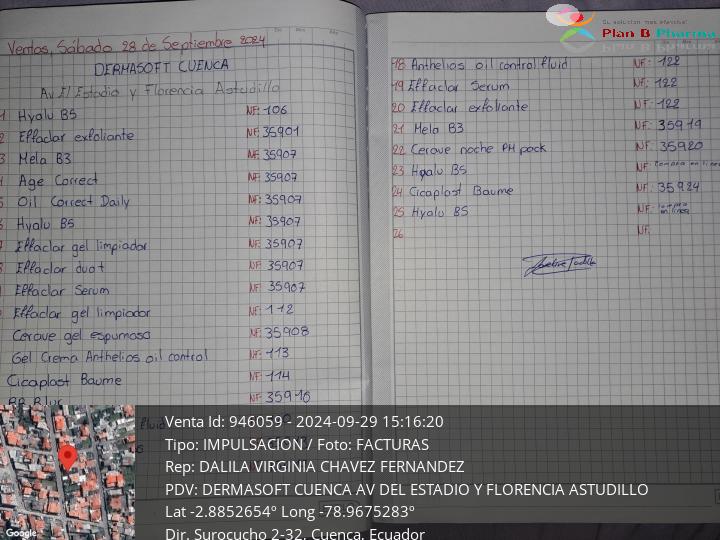 Su solución más efectiva!
Plan B Pharma
Ventas, Sábado 28 de Septiembre 2024
DERMASOFT CUENCA
Av El Estadio y Florencia Astudillo
1 Hyalu B5 NF: 106
2 Effaclar exfoliante NF: 35901
3 Mela B3 NF: 35907
Age Correct NF: 35907
5 Oil Correct Daily NF: 35907
Hyalu B5 NF: 35907
Effaclar gel limpiador NF: 35907
Effaclar duo+ NF: 35907
Effaclar Serum NF: 35907
Effaclar gel limpiador NF: 112
Cerave gel espumoso NF: 35908
Gel Crema Anthelios oil control NF: 113
Cicaplast Baume NF: 114
BB Blur NF: 35910
fluid
18 Anthelios oil control fluid NF: 122
19 Effaclar Serum NF: 122
20 Effaclar exfoliante NF: 122
21 Mela B3 NF: 35919
22 Cerave noche PM pack NF: 35920
23 Hyalu B5 NF: compra en linea
24 Cicaplast Baume NF: 35924
25 Hyalu B5 NF: compra en linea
26 NF:
Venta Id: 946059 - 2024-09-29 15:16:20
Tipo: IMPULSACION / Foto: FACTURAS
Rep: DALILA VIRGINIA CHAVEZ FERNANDEZ
PDV: DERMASOFT CUENCA AV DEL ESTADIO Y FLORENCIA ASTUDILLO
Lat -2.8852654º Long -78.9675283º
Dir. Surocucho 2-32, Cuenca, Ecuador
Google